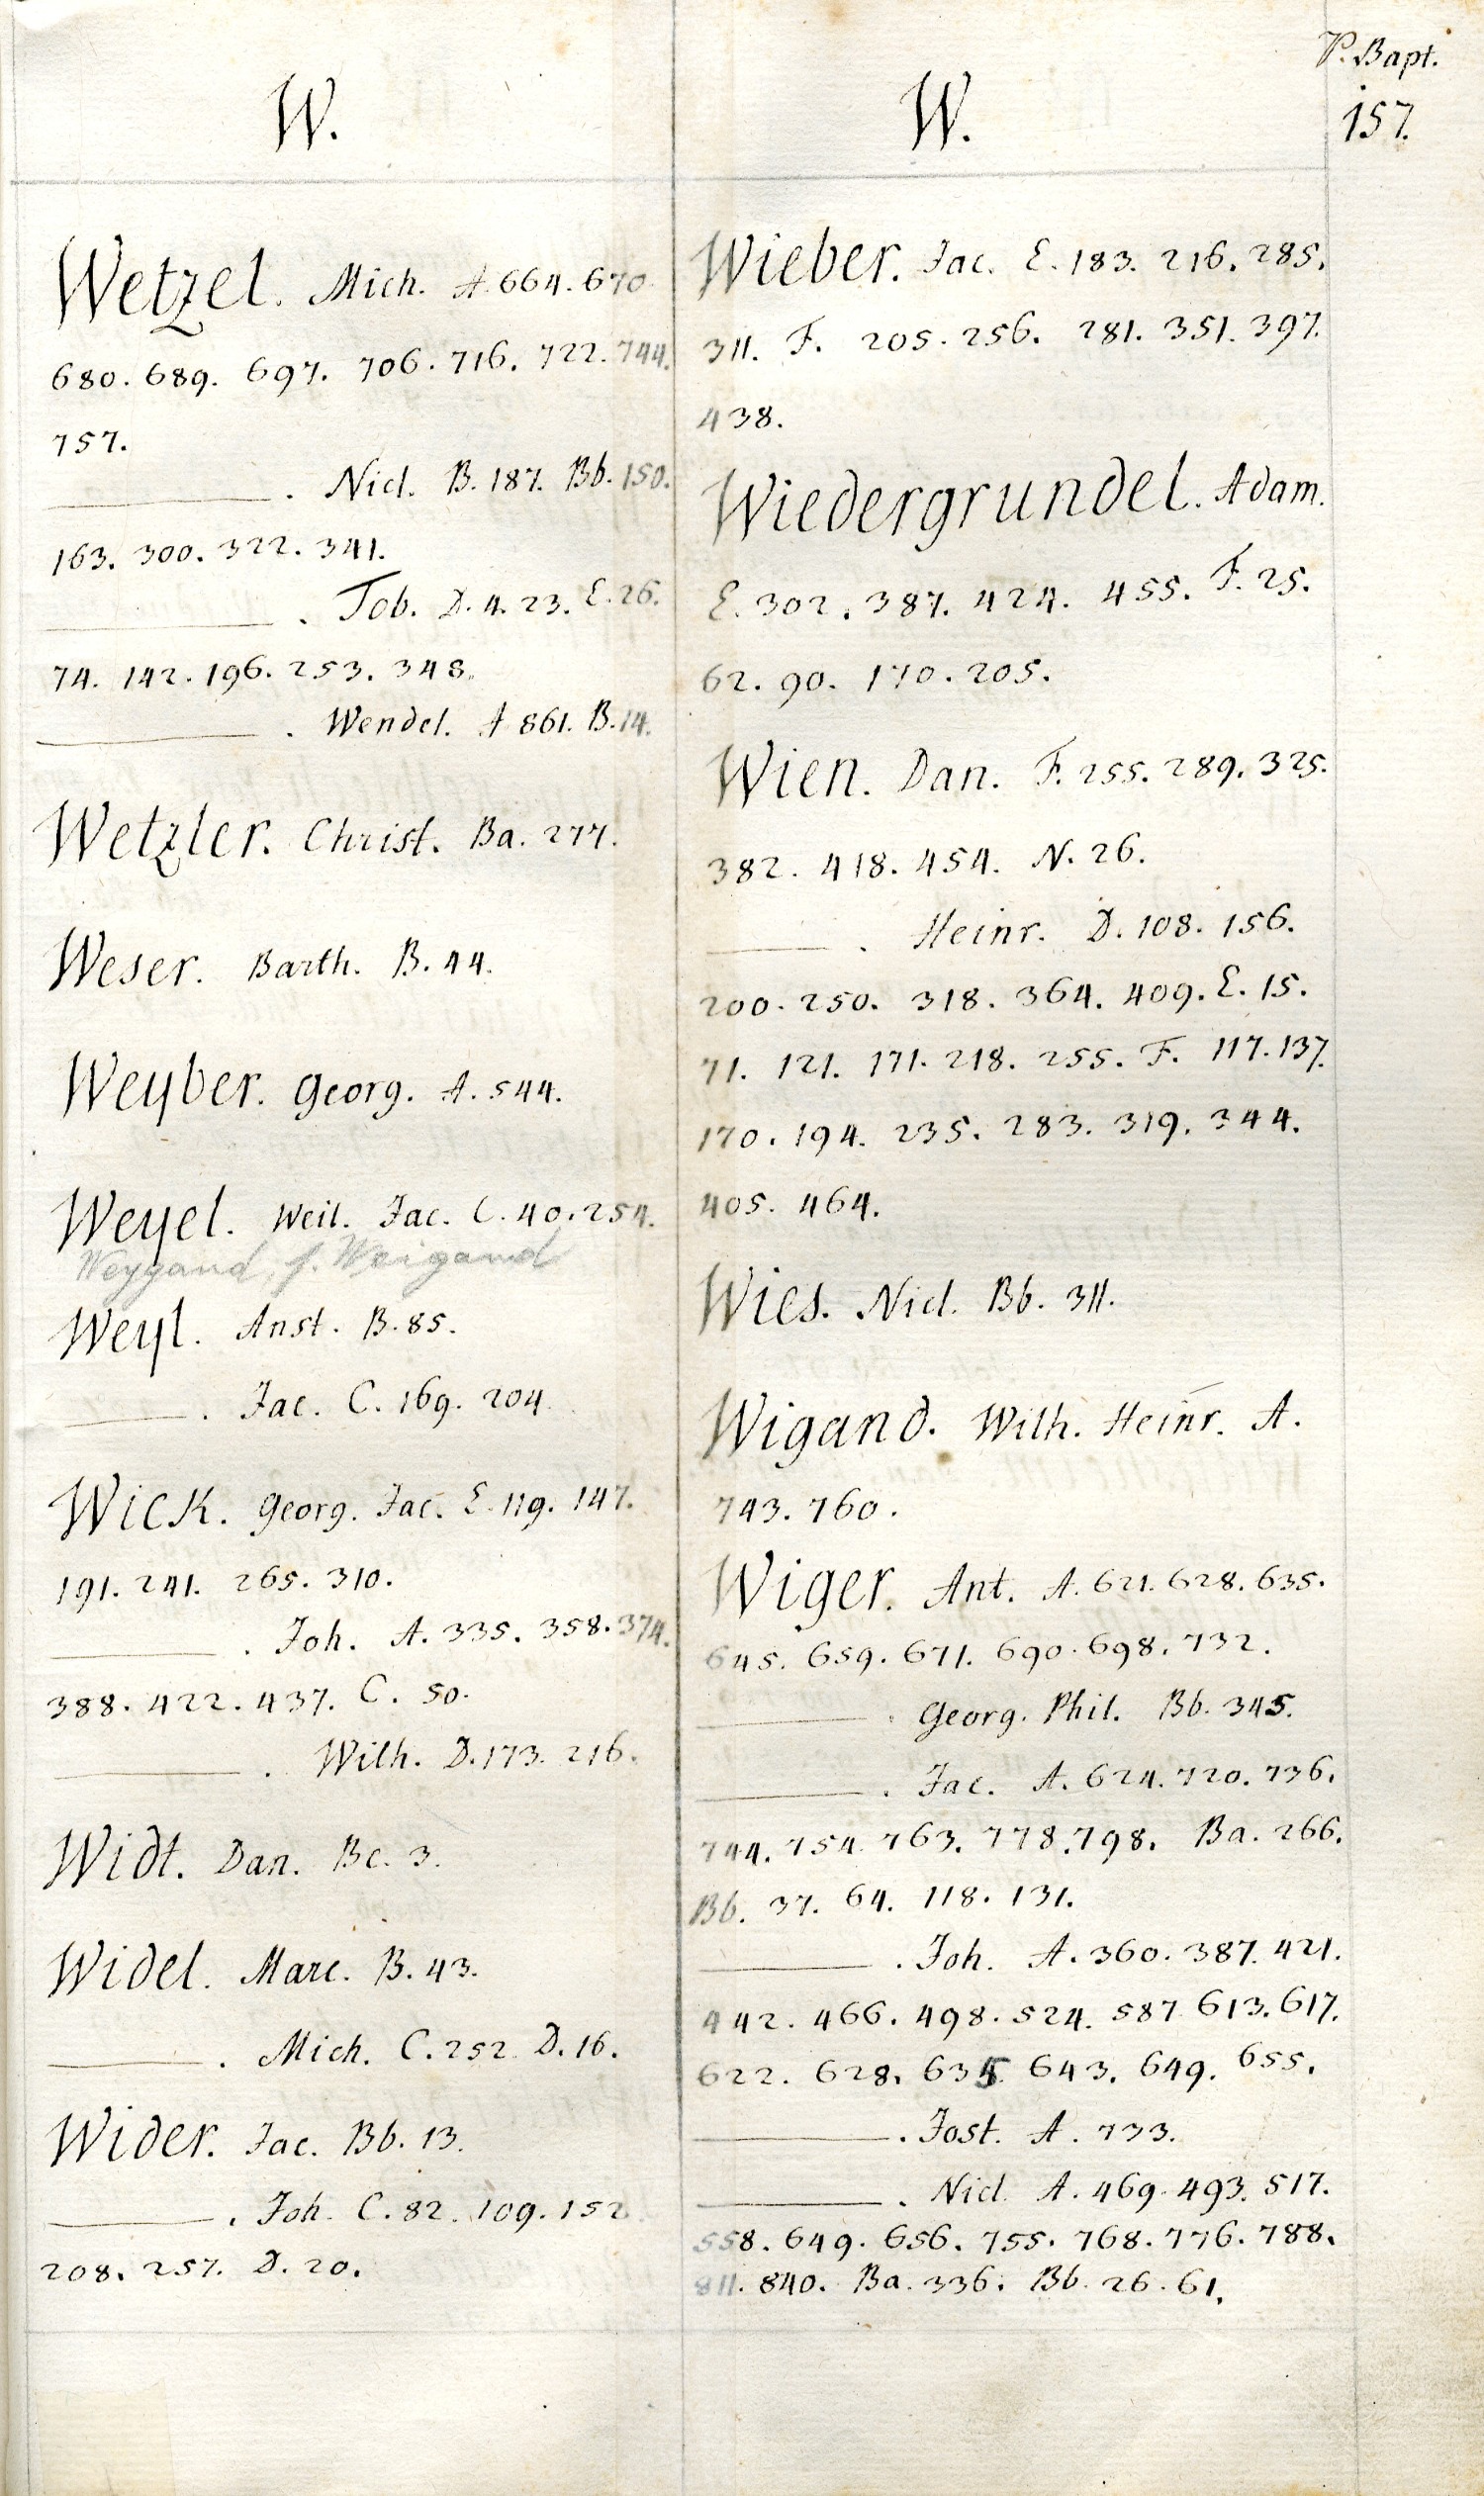 P. Bapt.
157.
W.
Wetzel. Mich. A. 664. 670.
680. 689. 697. 706. 716. 722. 744.
757.
———. Nicl. B. 187. Bb. 150.
163. 300. 322. 341.
———. Tob. D. 4. 23. E. 26.
74. 142. 196. 253. 348.
———. Wendel. A 861. B. 14.
Wetzler. Christ. Ba. 277.
Weser. Barth. B. 44.
Weyber. Georg. A. 544.
Weyel. Weil. Jac. C. 40. 254.
Weygand, s. Weigand
Weyl. Anst. B. 85.
———. Jac. C. 169. 204.
Wick. Georg. Jac. E. 119. 147.
191. 241. 265. 310.
———. Joh. A. 335. 358. 374.
388. 422. 437. C. 50.
———. Wilh. D. 173. 216.
Widt. Dan. Bc. 3.
Widel. Marc. B. 43.
———. Mich. C. 252. D. 16.
Wider. Jac. Bb. 13.
———. Joh. C. 82. 109. 152.
208. 257. D. 20.
W.
Wieber. Jac. E. 183. 216. 285.
311. F. 205. 256. 281. 351. 397.
438.
Wiedergrundel. Adam.
E. 302. 387. 424. 455. F. 25.
62. 90. 170. 205.
Wien. Dan. F. 255. 289. 325.
382. 418. 454. N. 26.
———. Heinr. D. 108. 156.
200. 250. 318. 364. 409. E. 15.
71. 121. 171. 218. 255. F. 117. 137.
170. 194. 235. 283. 319. 344.
405. 464.
Wies. Nicl. Bb. 311.
Wigand. Wilh. Heinr. A.
743. 760.
Wiger. Ant. A. 621. 628. 635.
645. 659. 671. 690. 698. 732.
———. Georg. Phil. Bb. 345.
———. Jac. A. 624. 720. 736.
744. 754. 763. 778. 798. Ba. 266.
Bb. 37. 64. 118. 131.
———. Joh. A. 360. 387. 421.
442. 466. 498. 524. 587. 613. 617.
622. 628. 635. 643. 649. 655.
———. Jost. A. 733.
———. Nicl. A. 469. 493. 517.
558. 649. 656. 755. 768. 776. 788.
811. 840. Ba. 336. Bb. 26. 61.